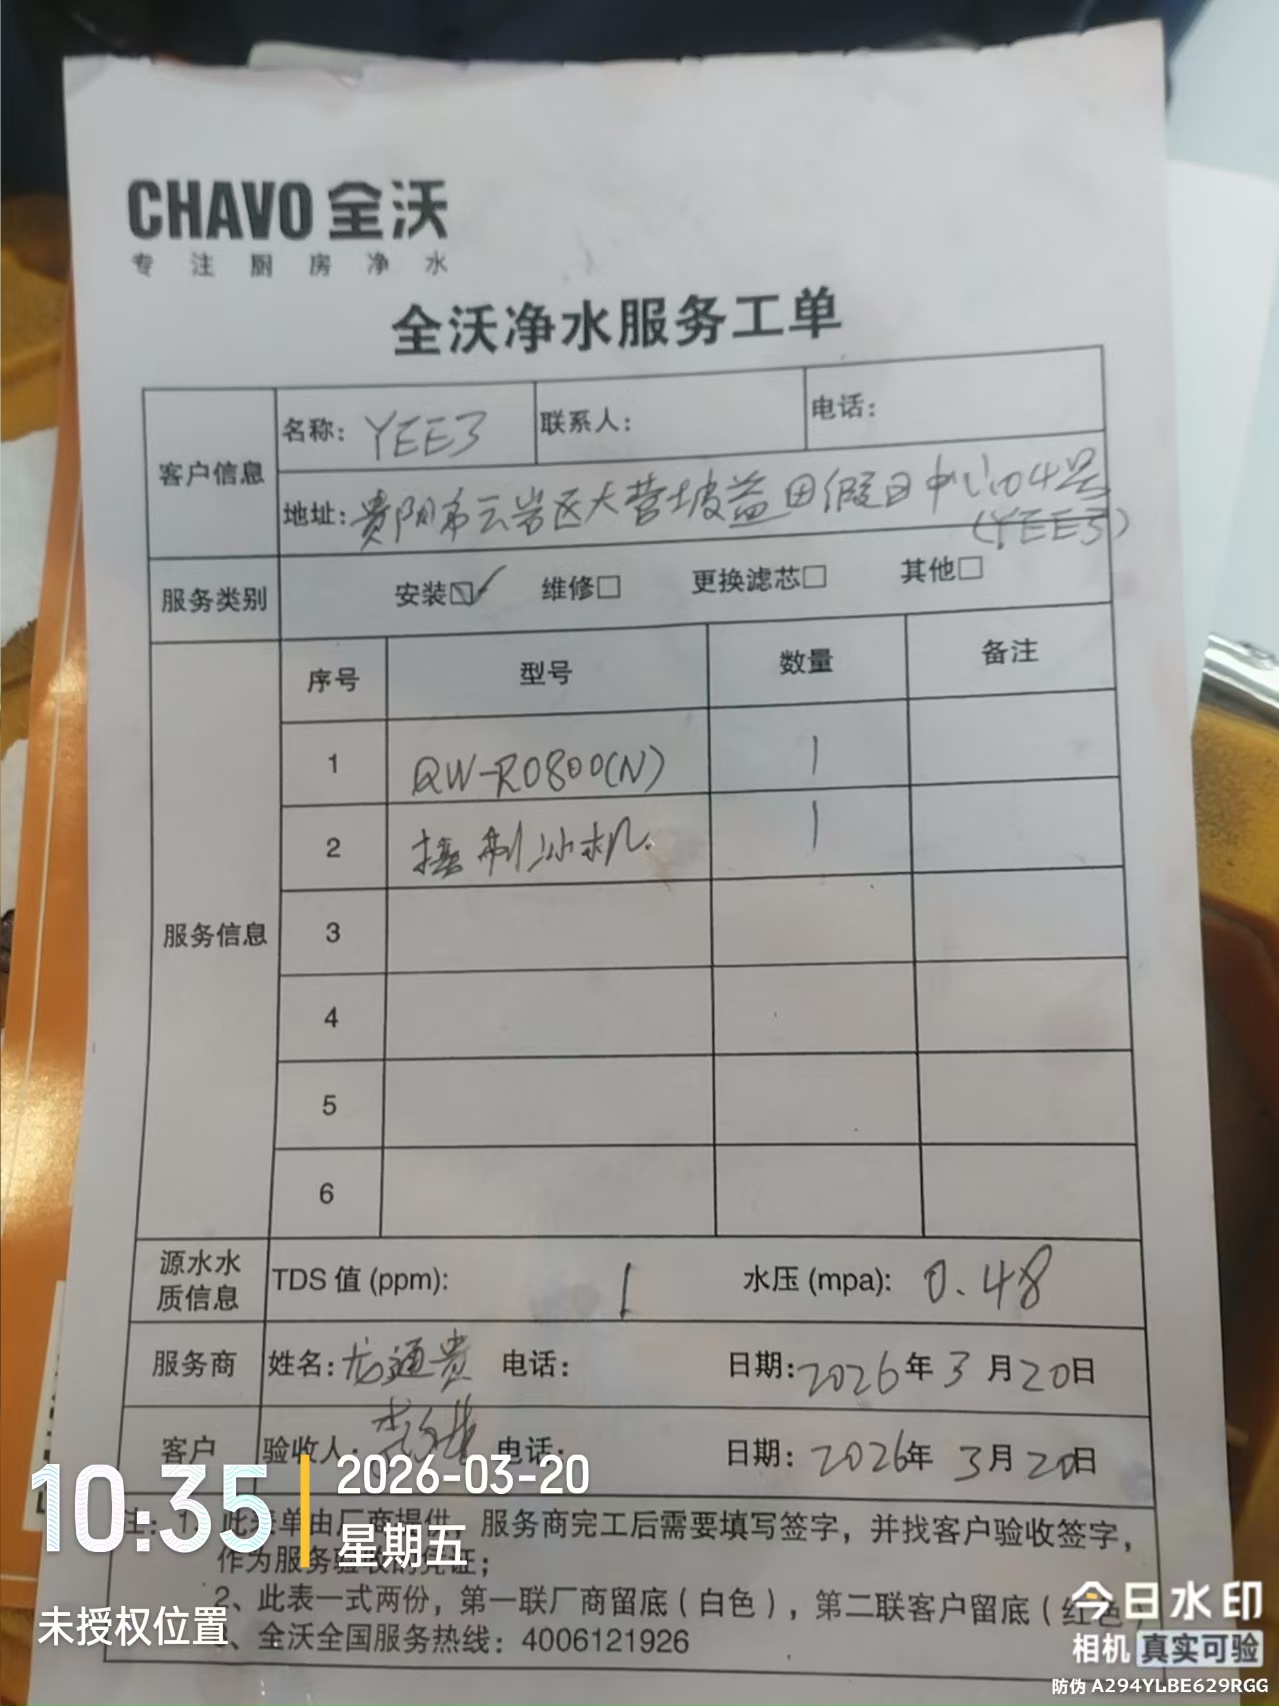 CHAVO 全沃
专注厨房净水
全沃净水服务工单
客户信息
名称: YEE3
联系人:
电话:
地址: 贵阳市云岩区大营坡益田假日中心104号
(YEE3)
服务类别
安装☑ 维修☐ 更换滤芯☐ 其他☐
服务信息
序号 型号 数量 备注
1 QW-RO800(N) 1
2 接制冰机 1
3
4
5
6
源水水质信息
TDS 值 (ppm): 1 水压 (mpa): 0.48
服务商 姓名: 龙通贵 电话: 日期: 2026年3月20日
客户 验收人: 电话: 日期: 2026年3月20日
注: 1、此表单由厂商提供，服务商完工后需要填写签字，并找客户验收签字，
作为服务验收的凭证；
2、此表一式两份，第一联厂商留底（白色），第二联客户留底（红色
、全沃全国服务热线：4006121926
10:35
2026-03-20
星期五
未授权位置
今日水印
相机 真实可验
防伪 A294YLBE629RGG